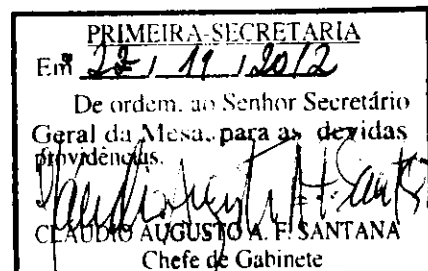 PRIMEIRA-SECRETARIA
Em 22 / 11 / 2012
De ordem, ao Senhor Secretário
Geral da Mesa, para as devidas
providências.
CLAUDIO AUGUSTO A. F. SANTANA
Chefe de Gabinete